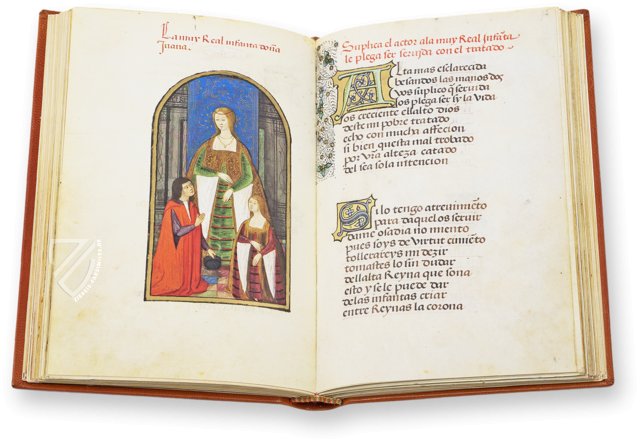 La muy Real infanta doña
Juana.
Suplica el actor ala muy Real Infãta
le plega ser seruida con el tratado
Alta mas esclarecida
besandos las manos do
vos suplico q̃ seruida
os plega ser sy la vida
os creciente ellalto dios
deste mi pobre tratado
echo con mucha affecion
si bien questa mal trobado
por vr̃a alteza catado
del sea sola intencion
Si lo tengo atreuimẽto
para daquelos seruir
dame osadia no miento
pues soys de virtut cimiẽto
tollerareys mi dezir
tomastes lo sin dudar
dellalta Reyna que sona
esto y se le puede dar
delas infantas criar
entre Reynas la corona